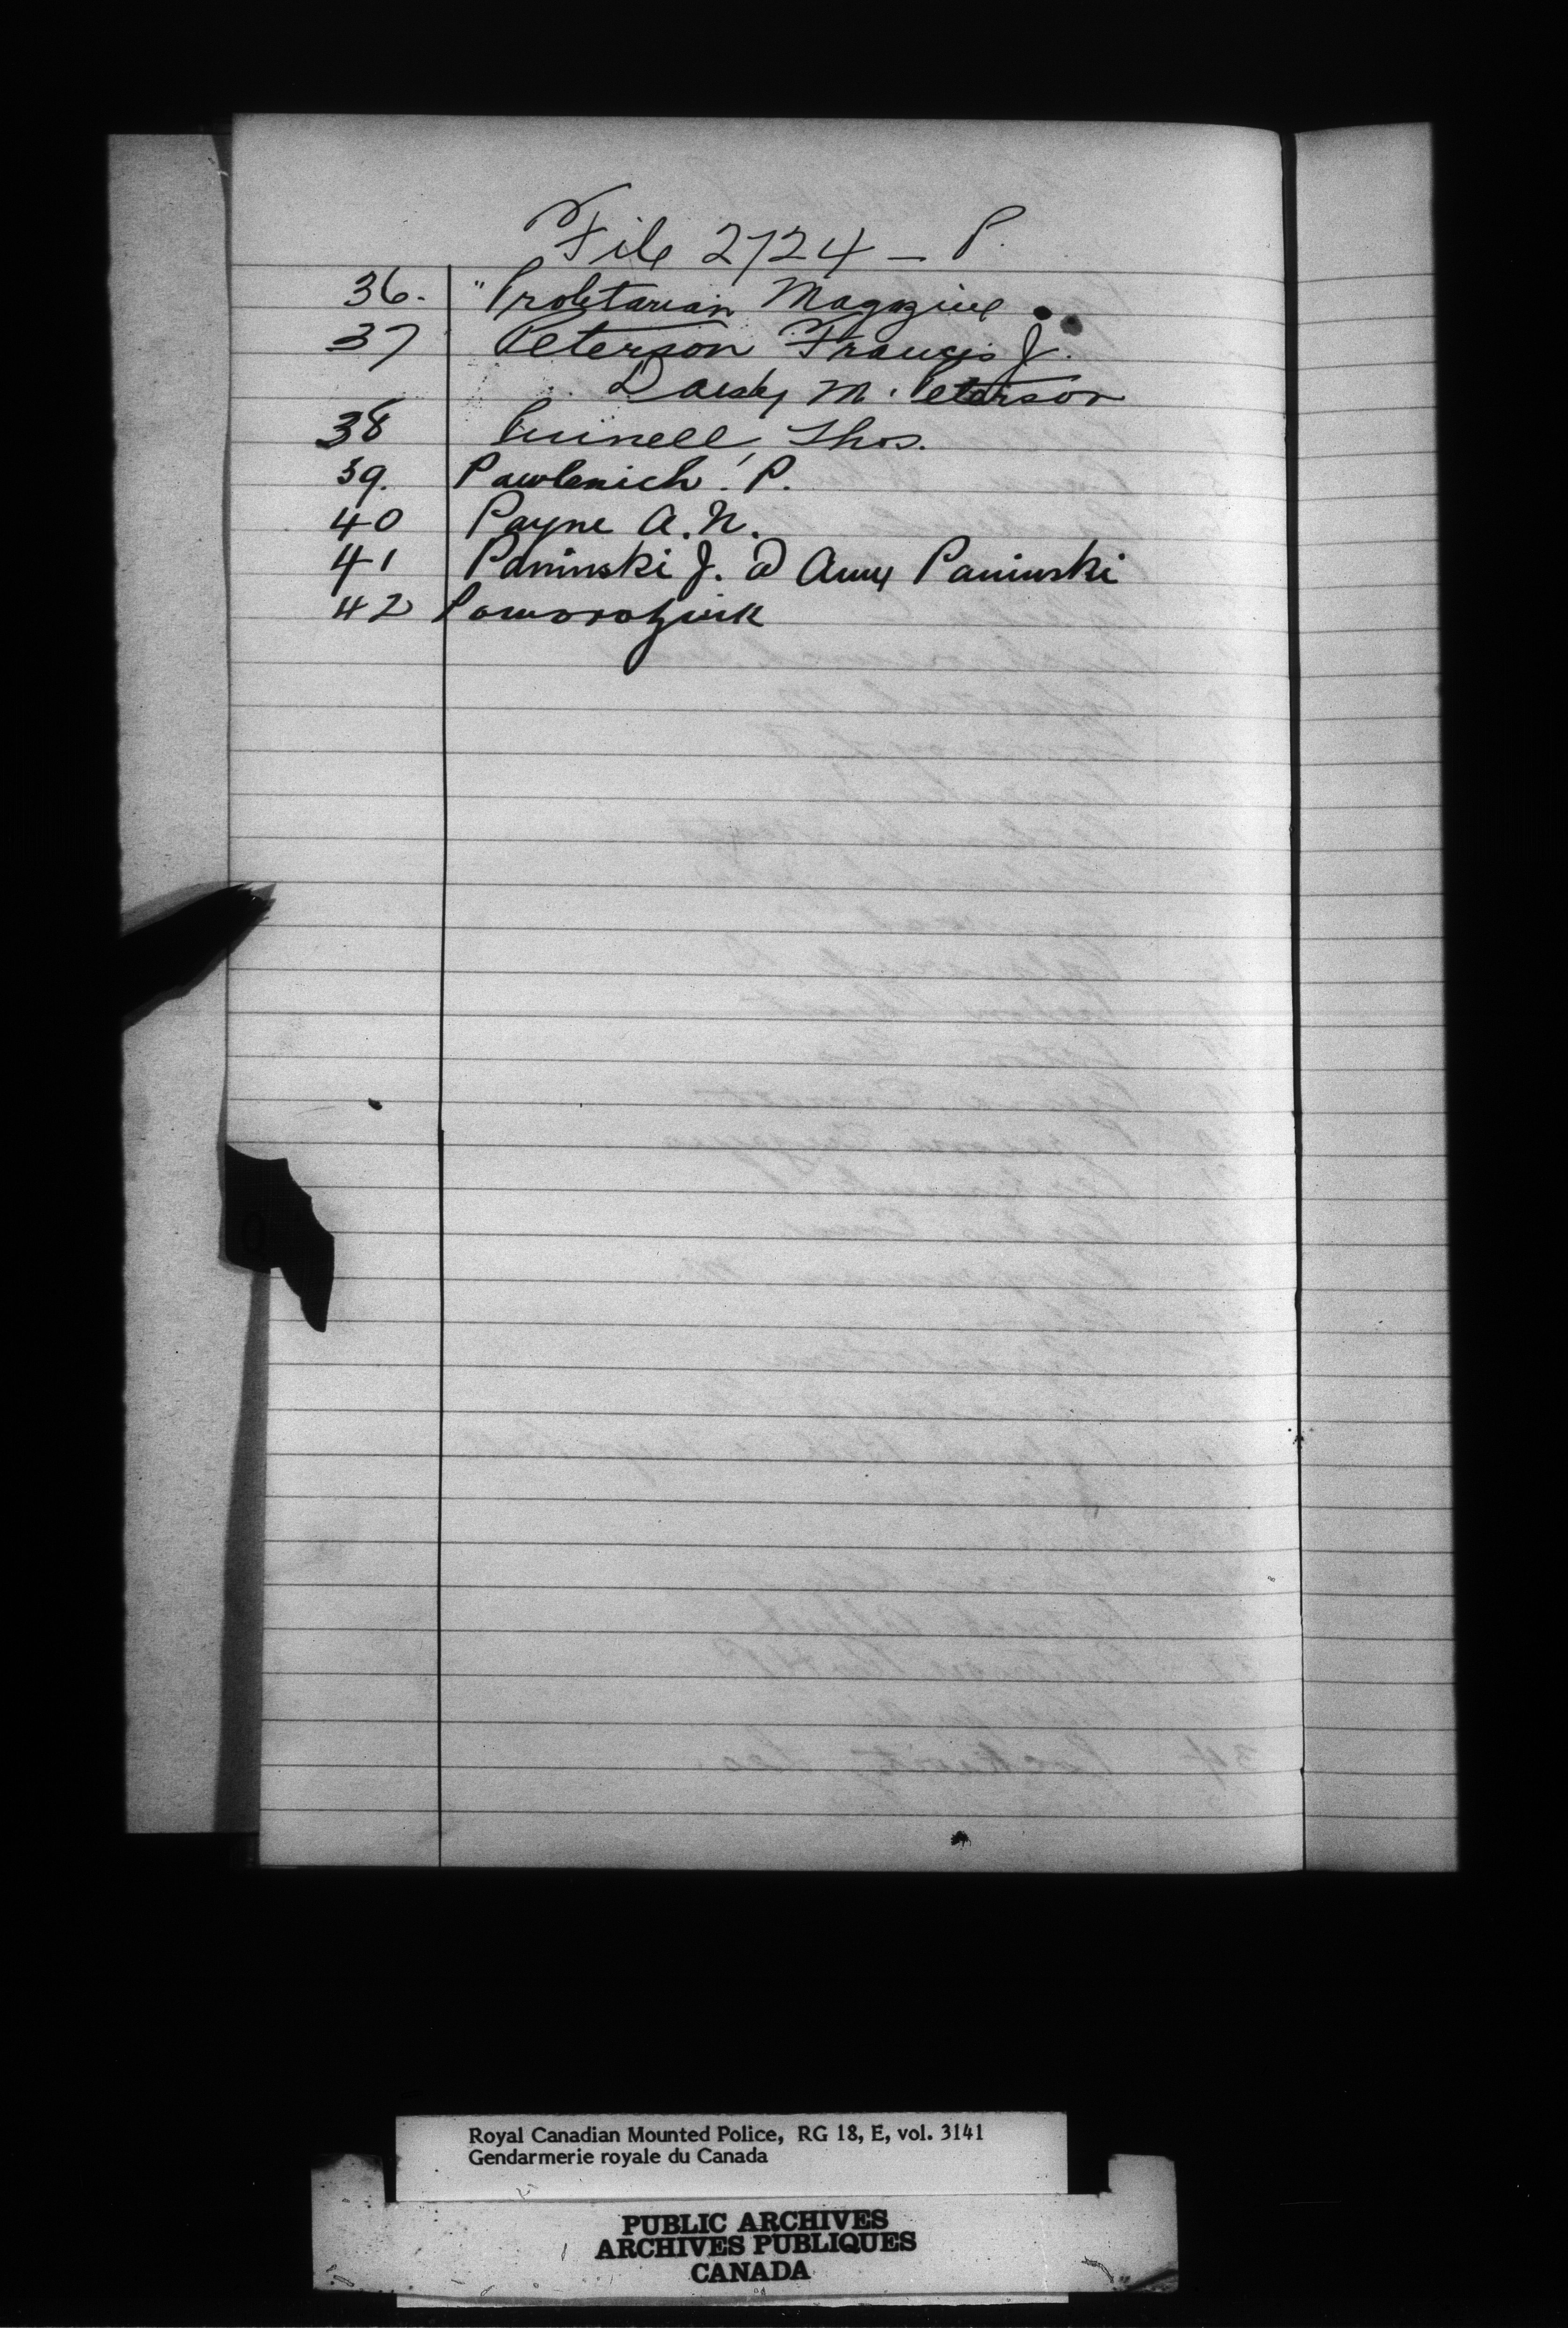 File 2724 - P.
36. "Proletarian Magazine.
37 Peterson Francis J.
Daisy M. Peterson
38 Thos.
39. P.
40 Payne A. N.
41 Paninski J. & Paninski
42
Royal Canadian Mounted Police, RG 18, E, vol. 3141
Gendarmerie royale du Canada
PUBLIC ARCHIVES
ARCHIVES PUBLIQUES
CANADA